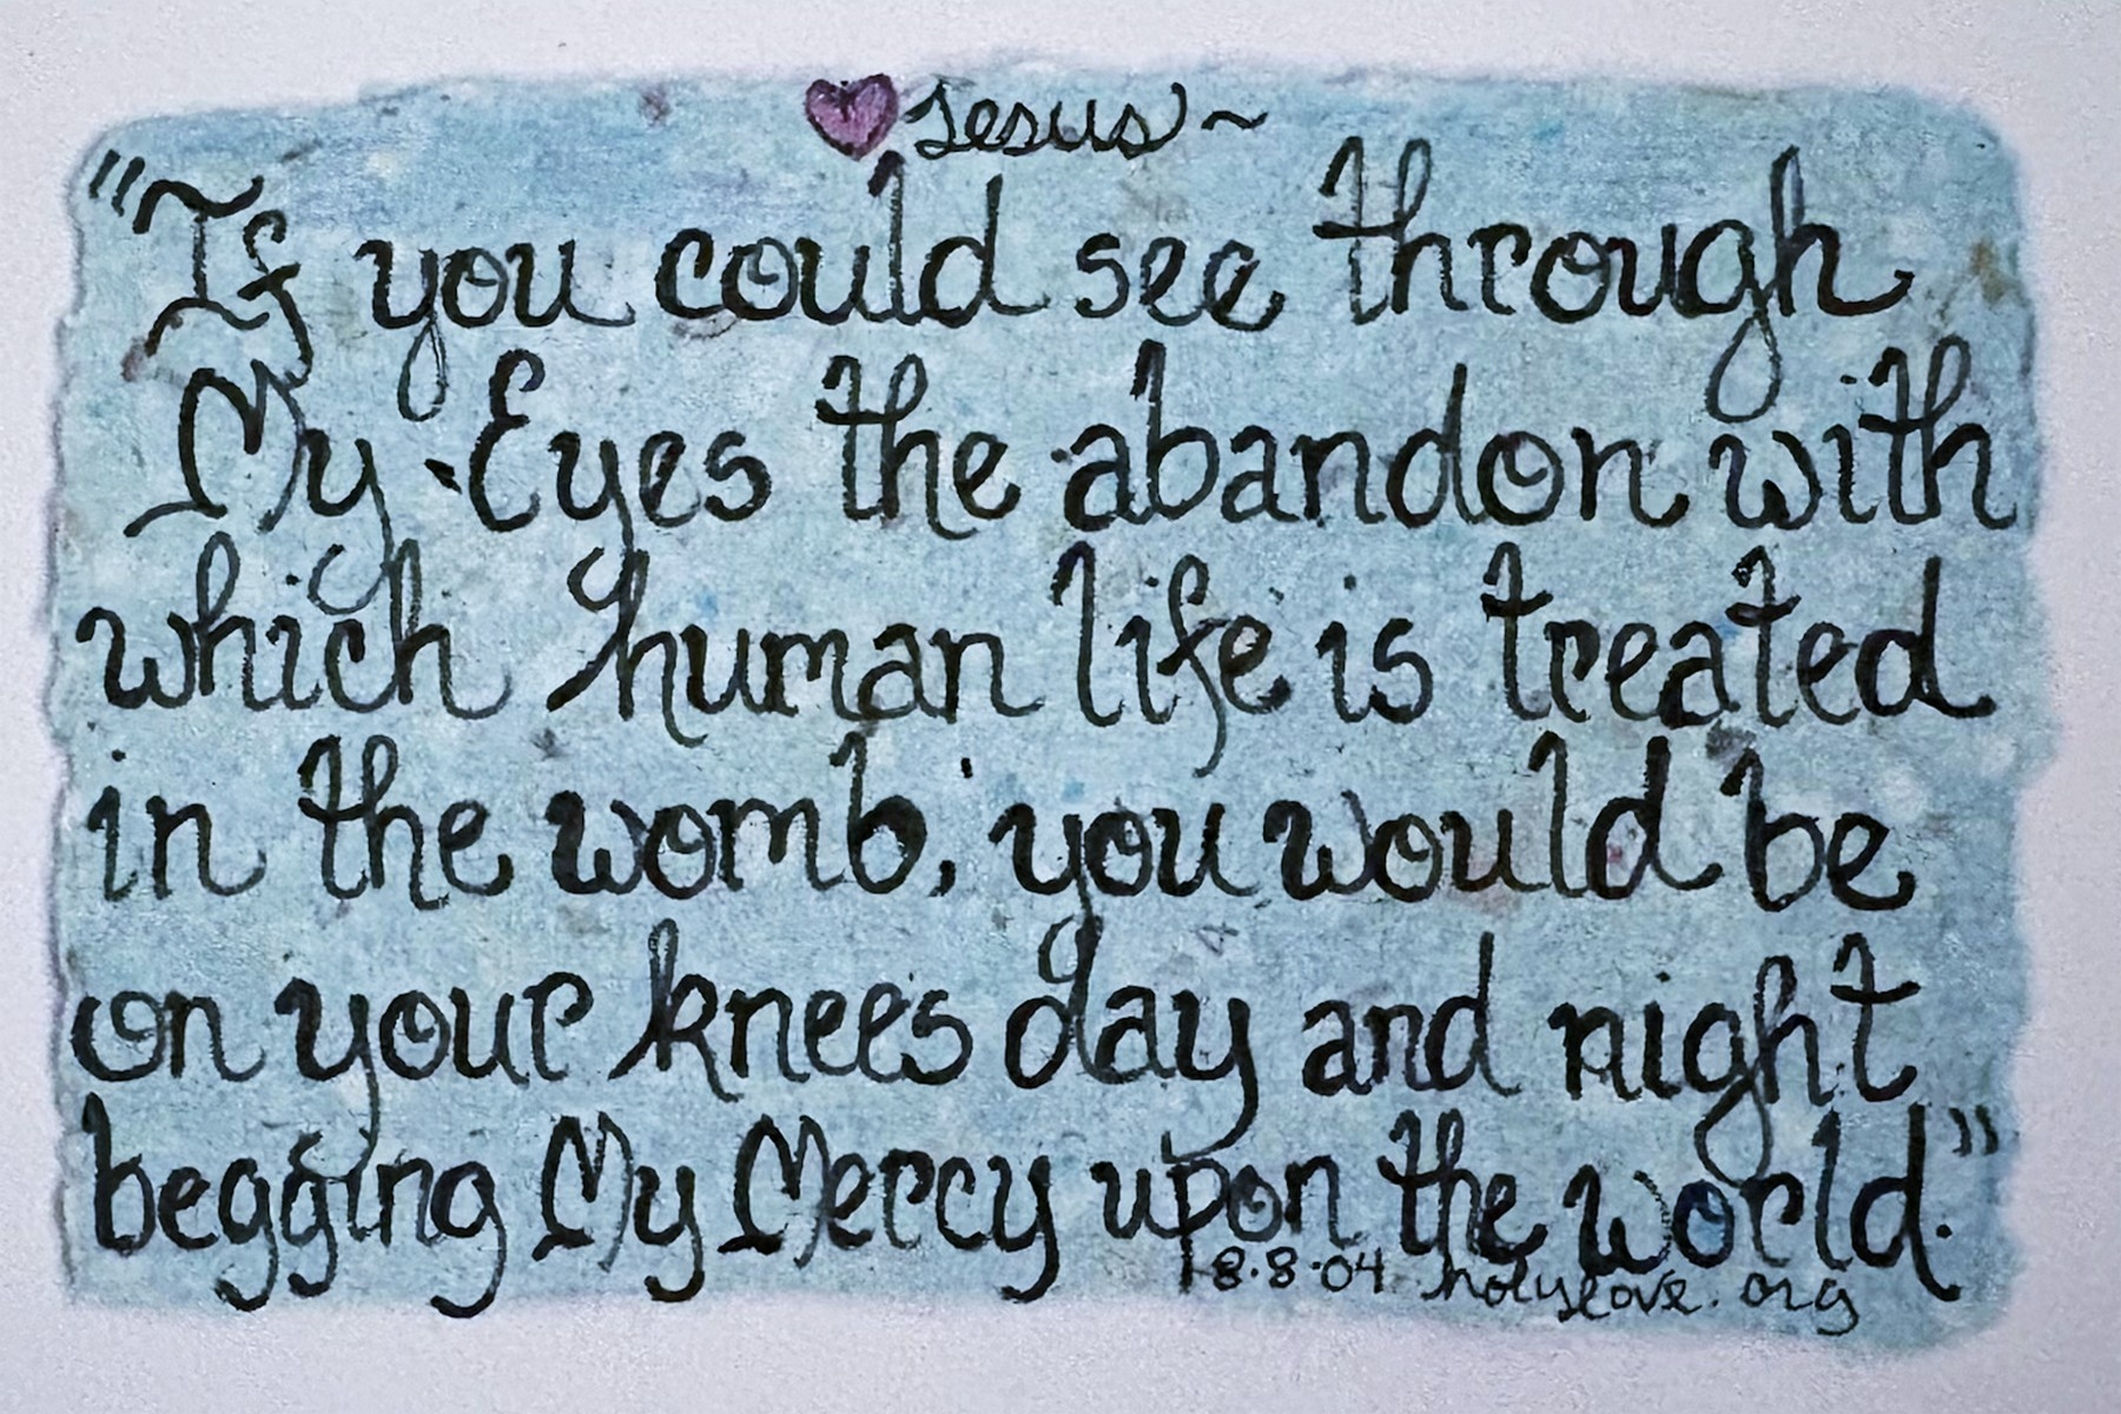 Jesus ~
"If you could see through
My Eyes the abandon with
which human life is treated
in the womb, you would be
on your knees day and night
begging My Mercy upon the world."
8.8.04 holylove.org